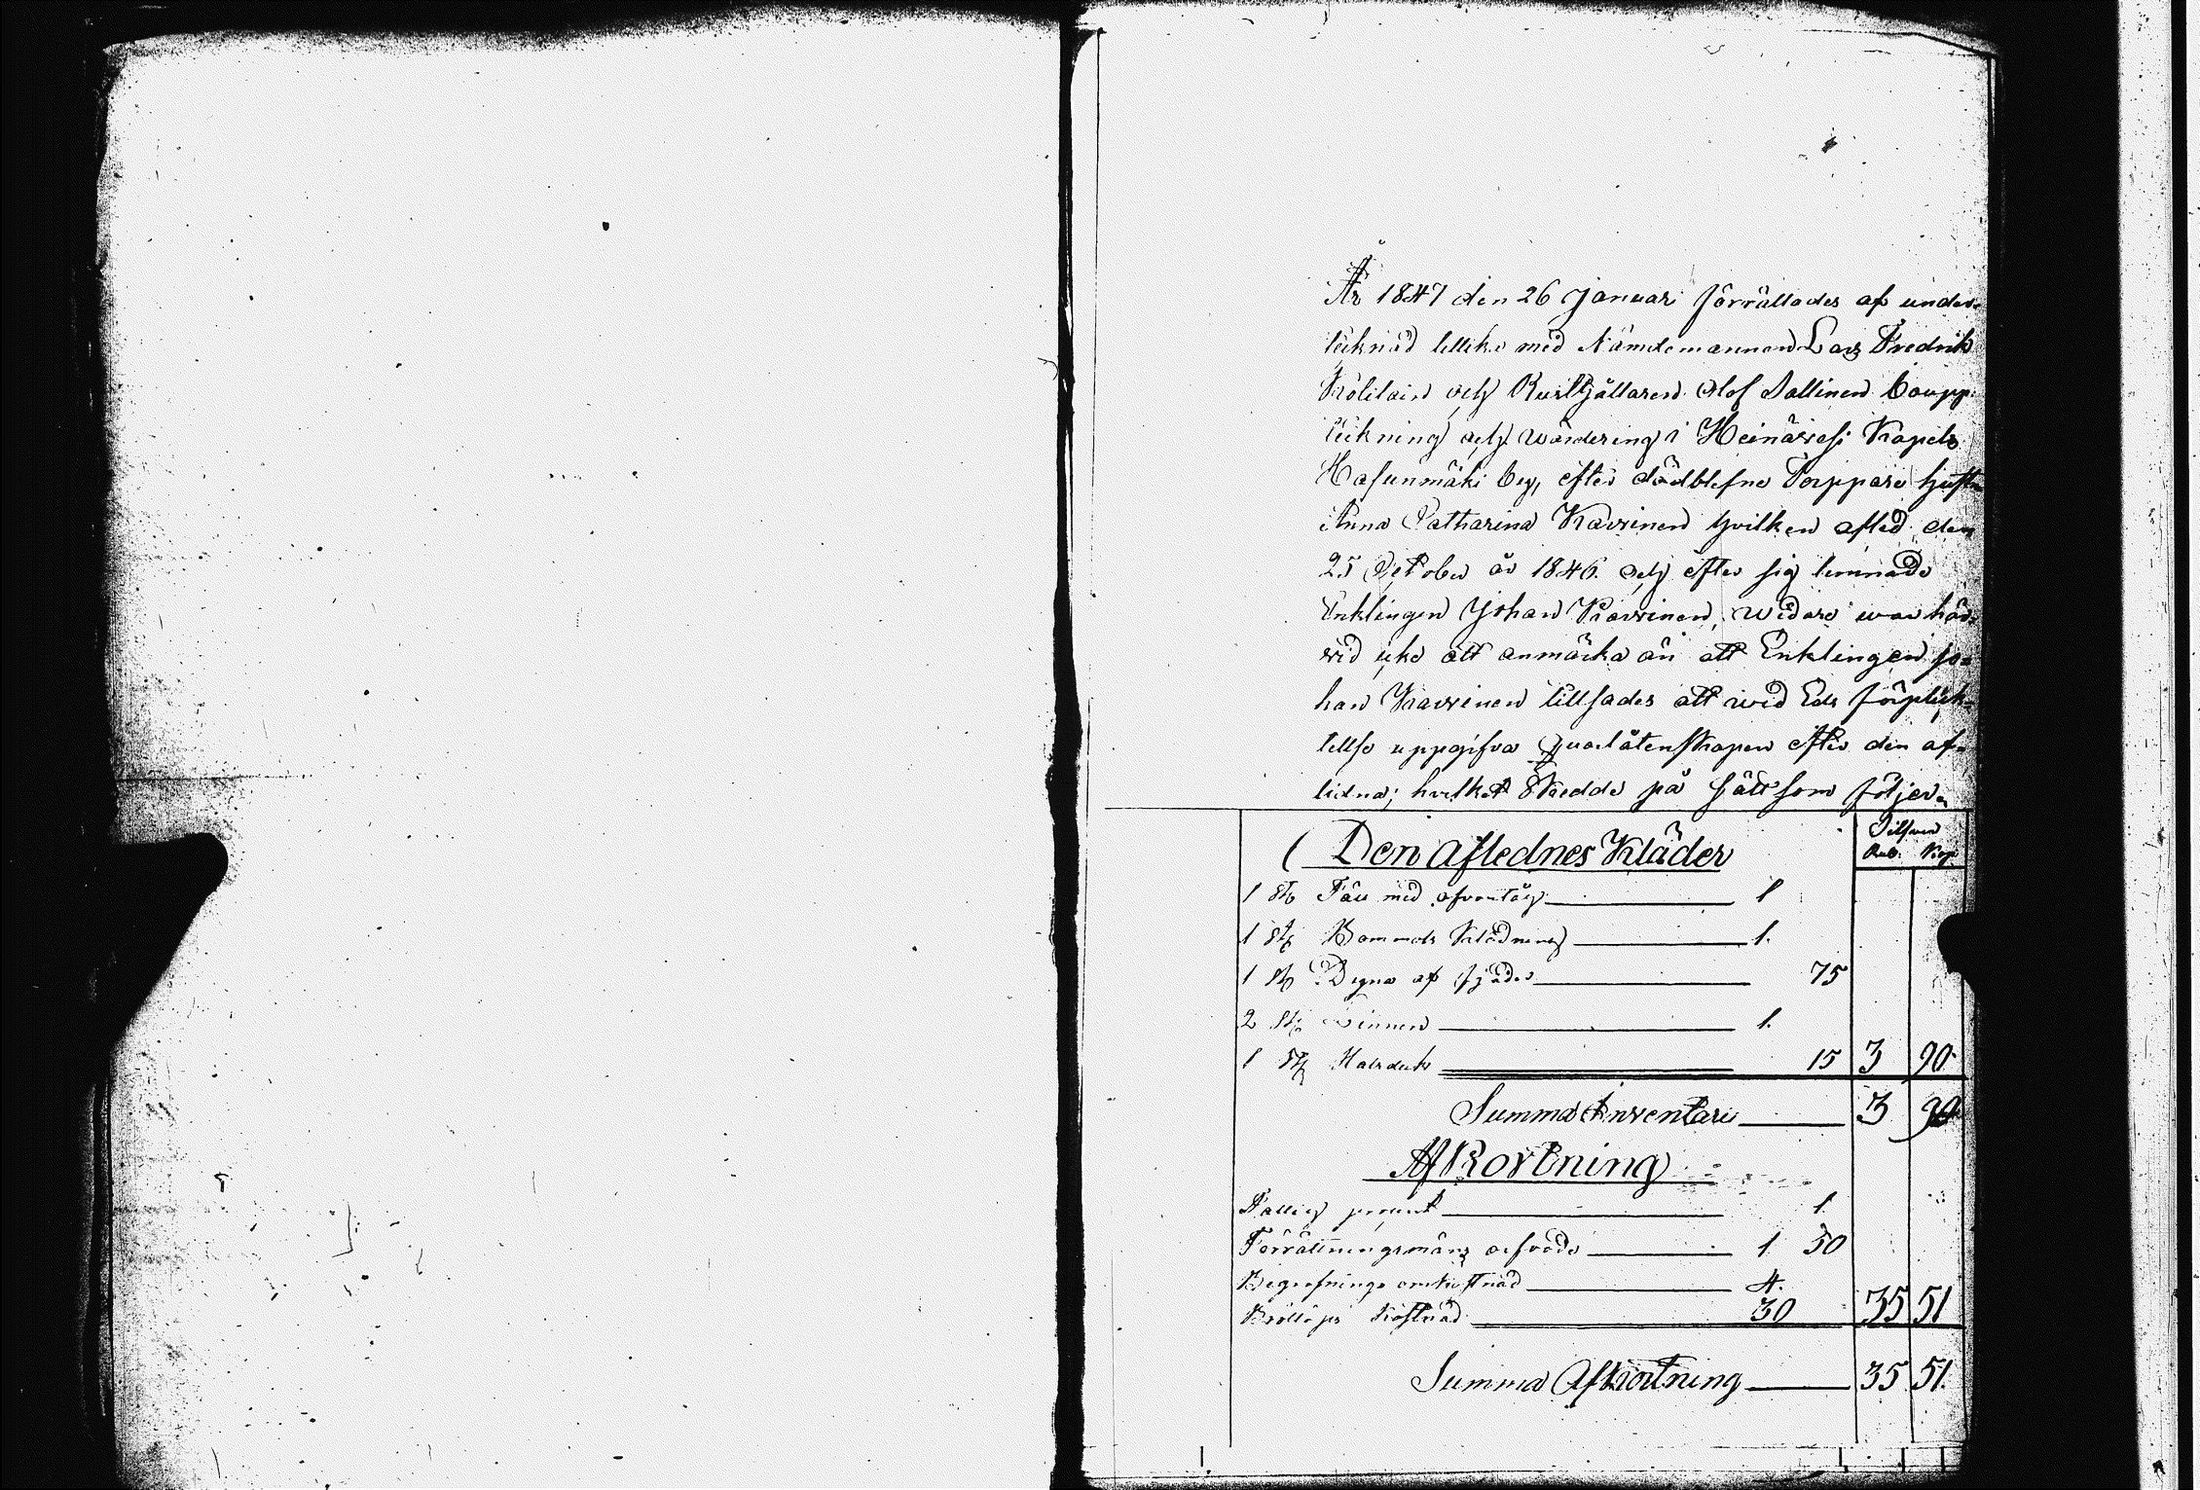 År 1847 den 26 Januari förrättades af under-
tecknad tillika med Nämdemannen Lars Fredrik
och Rusthållaren Olof Sallinen boupp-
teckning och wärdering i Heinävesi Kapels
Hasunmäki by, efter dödblefne Torppare hustru
Anna Catharina Kavrinen hvilken afled den
25 October år 1846. och efter sig lemnade
Enklingen Johan Kavrinen, widare war här-
wid icke att anmärka än att Enklingen Jo-
han Kavrinen tillsades att wid Eds förplick-
telse uppgifva quarlåtenskapen efter den af-
lidna; hvilket Skedde på sätt som följer.
Den Aflednes Kläder
Silfver
Rub. Kop
1 St Fäll med 1
1 St Bommols Klädning 1.
1 St af fjäder 75
2 St Linnen 1.
1 St Halsduk 15 3 90.
Summa Inventari 3 90
Afkortning
Fattig procent 1
Förrättningsmäns arfvode 1 50
Begrafnings omkostnad 4.
Bröllops Kostnad 30 35 51
Summa Afkortning 35 51.